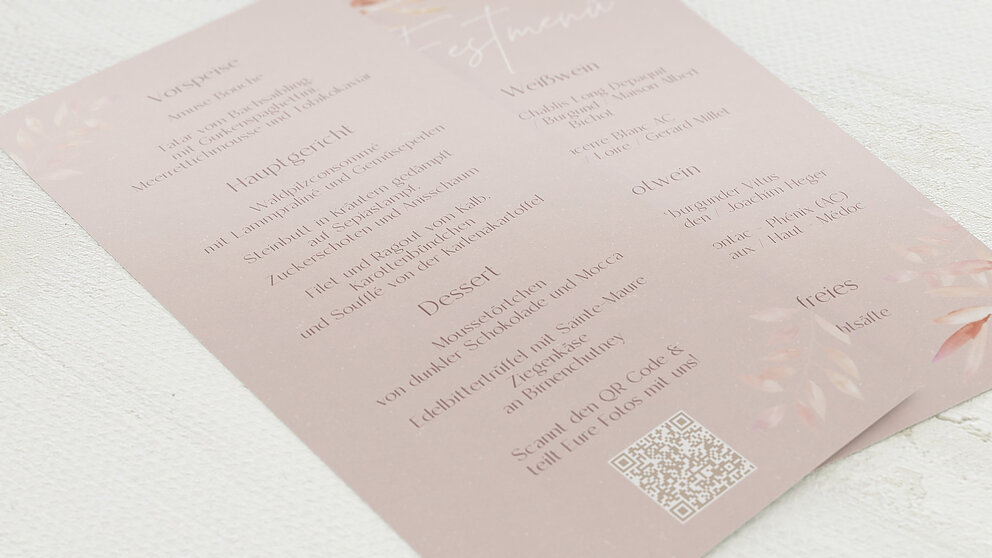 Vorspeise
Amuse Bouche
Tatar vom Bachsaibling
mit Gurkenspaghettini,
Meerrettichmousse und Tobikokaviar
Hauptgericht
Waldpilzconsommé
mit Lammpraliné und Gemüseperlen
Steinbutt in Kräutern gedämpft
auf Sepiastampf,
Zuckerschoten und Anisschaum
Filet und Ragout vom Kalb,
Karottenbündchen
und Soufflé von der Kartenakartoffel
Dessert
Moussetörtchen
von dunkler Schokolade und Mocca
Edelbittertrüffel mit Sainte-Maure
Ziegenkäse
an Birnenchutney
Scannt den QR Code &
teilt Eure Fotos mit uns!
Festmenü
Weißwein
Chablis Long Depaquit
/ Burgund / Maison Albert
Bichot
ncerre Blanc AC
/ Loire / Gerard Millet
otwein
burgunder Vitus
den / Joachim Heger
ontac - Phénix (AC)
aux / Haut - Médoc
freies
htsäfte